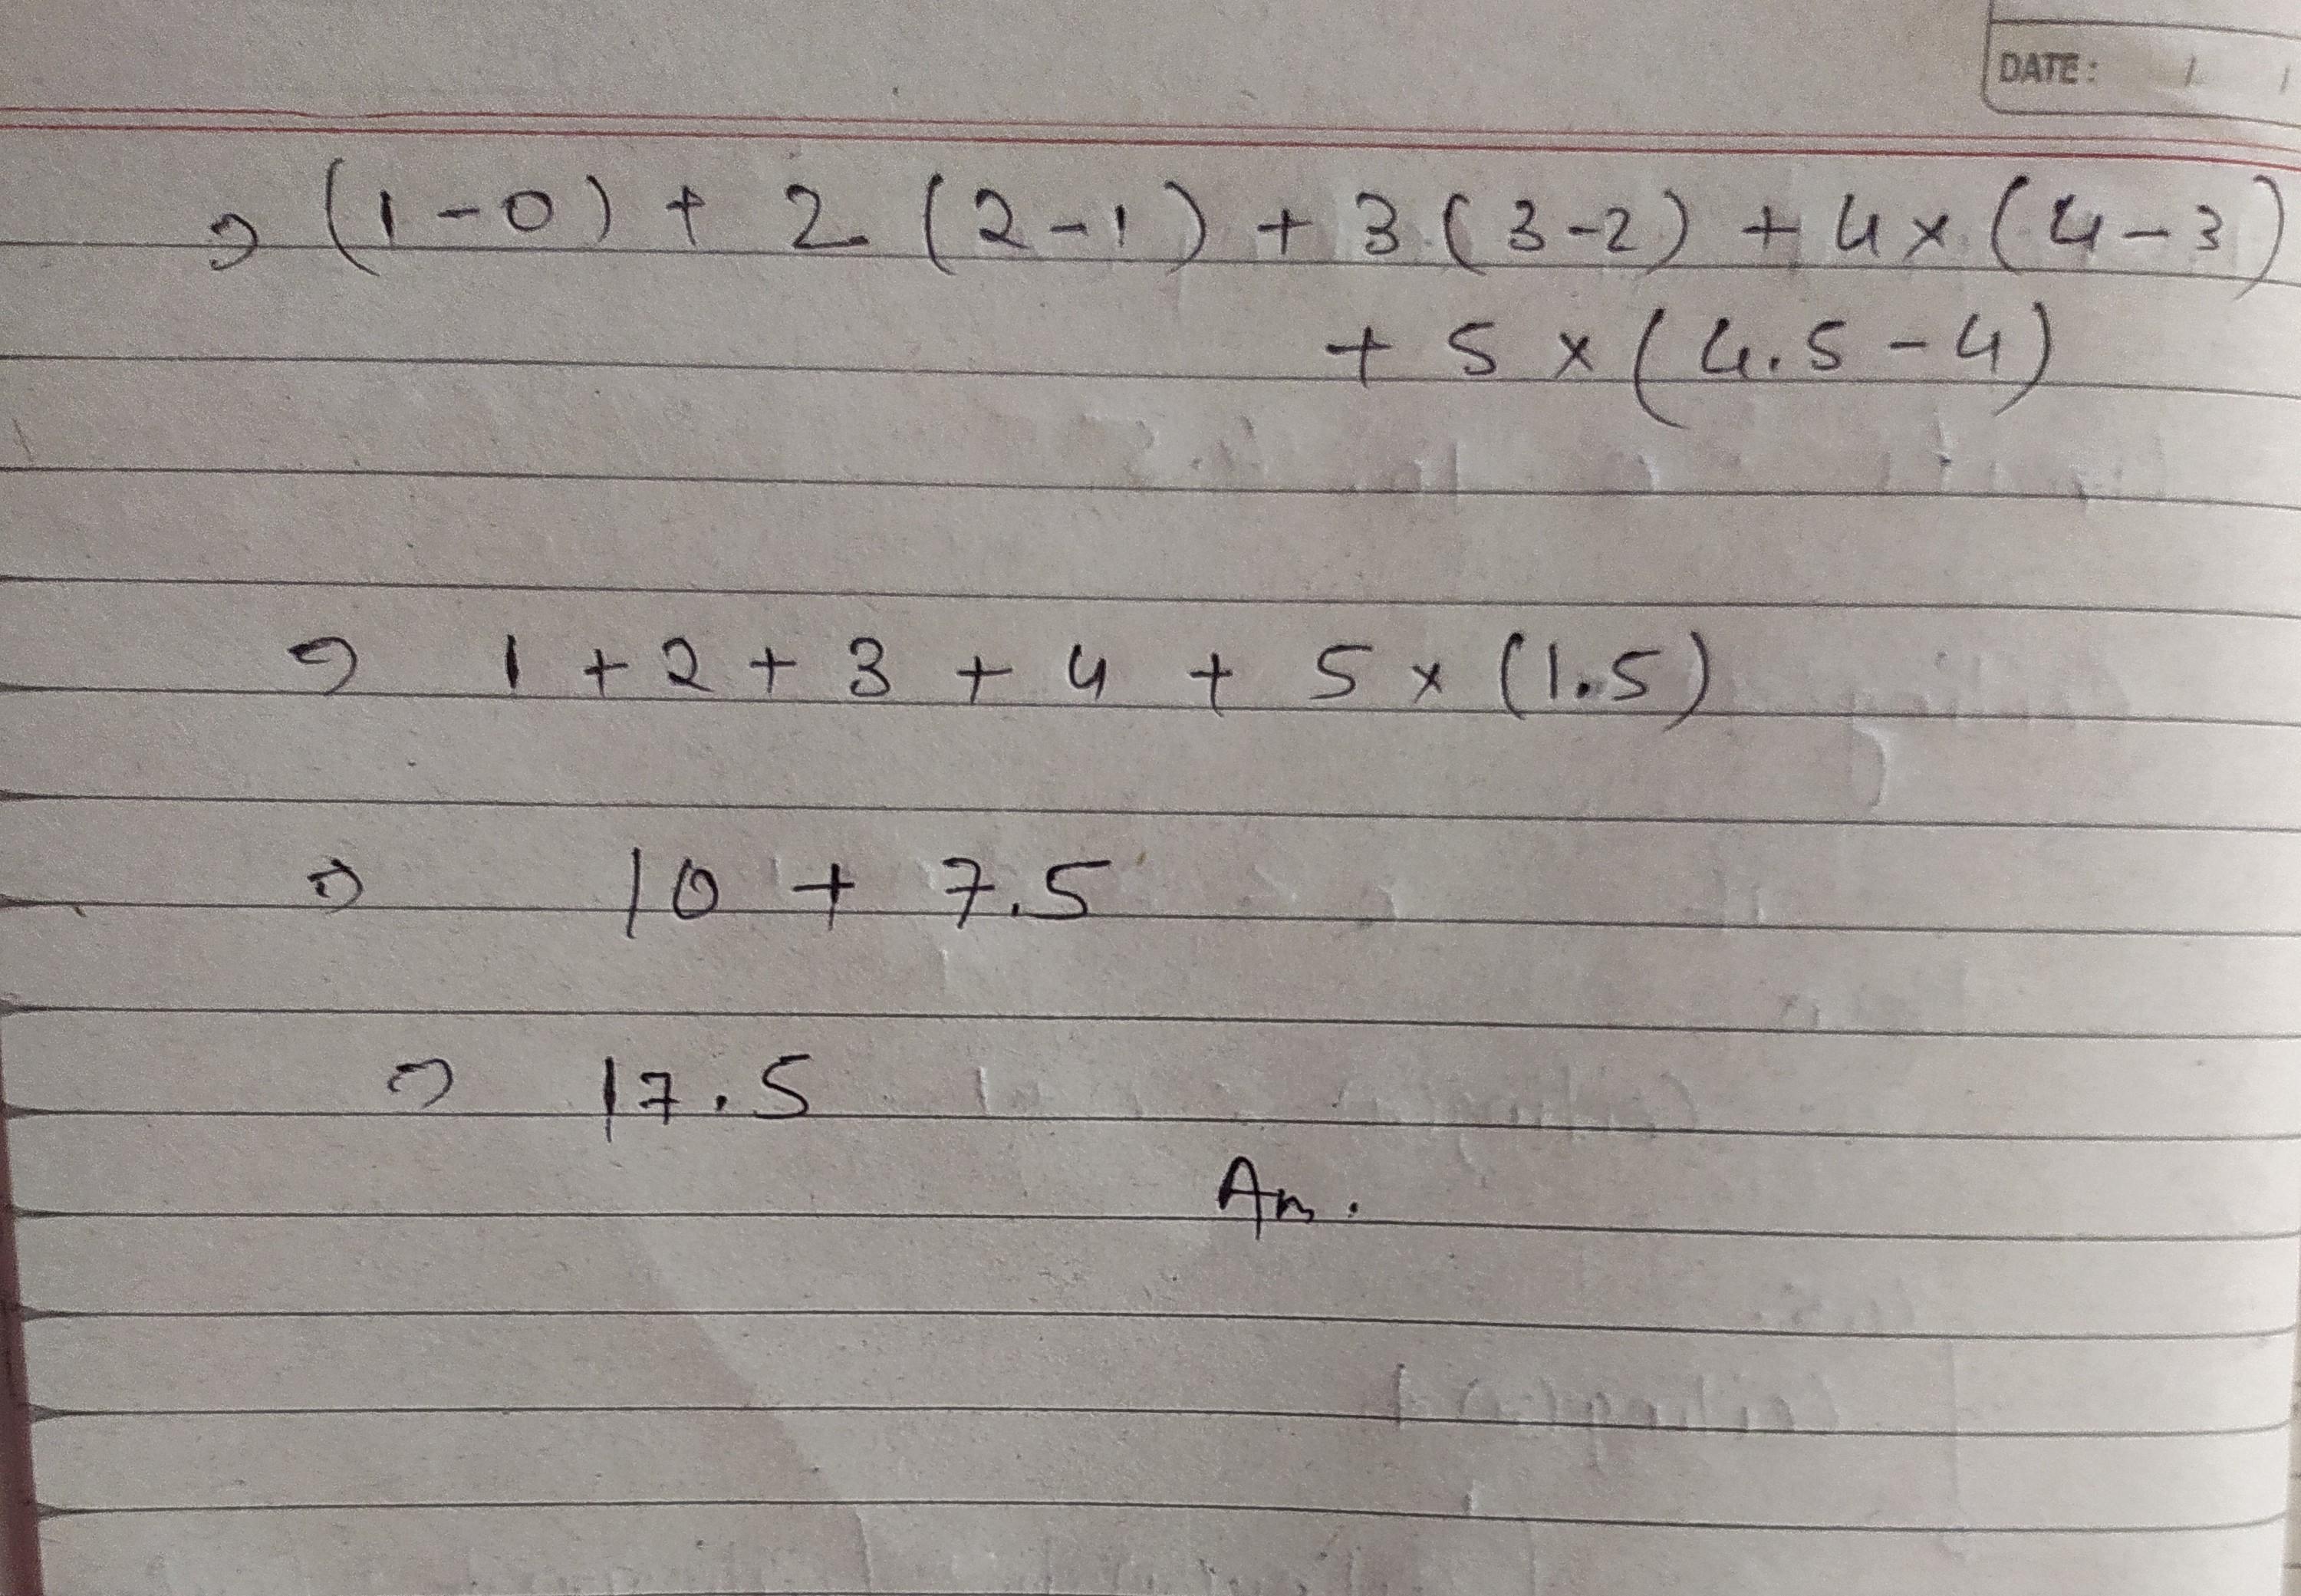 DATE: / /
⇒ (1-0) + 2 (2-1) + 3 (3-2) + 4 × (4-3)
+ 5 × (4.5-4)
⇒ 1 + 2 + 3 + 4 + 5 × (1.5)
⇒ 10 + 7.5
⇒ 17.5
Ans.